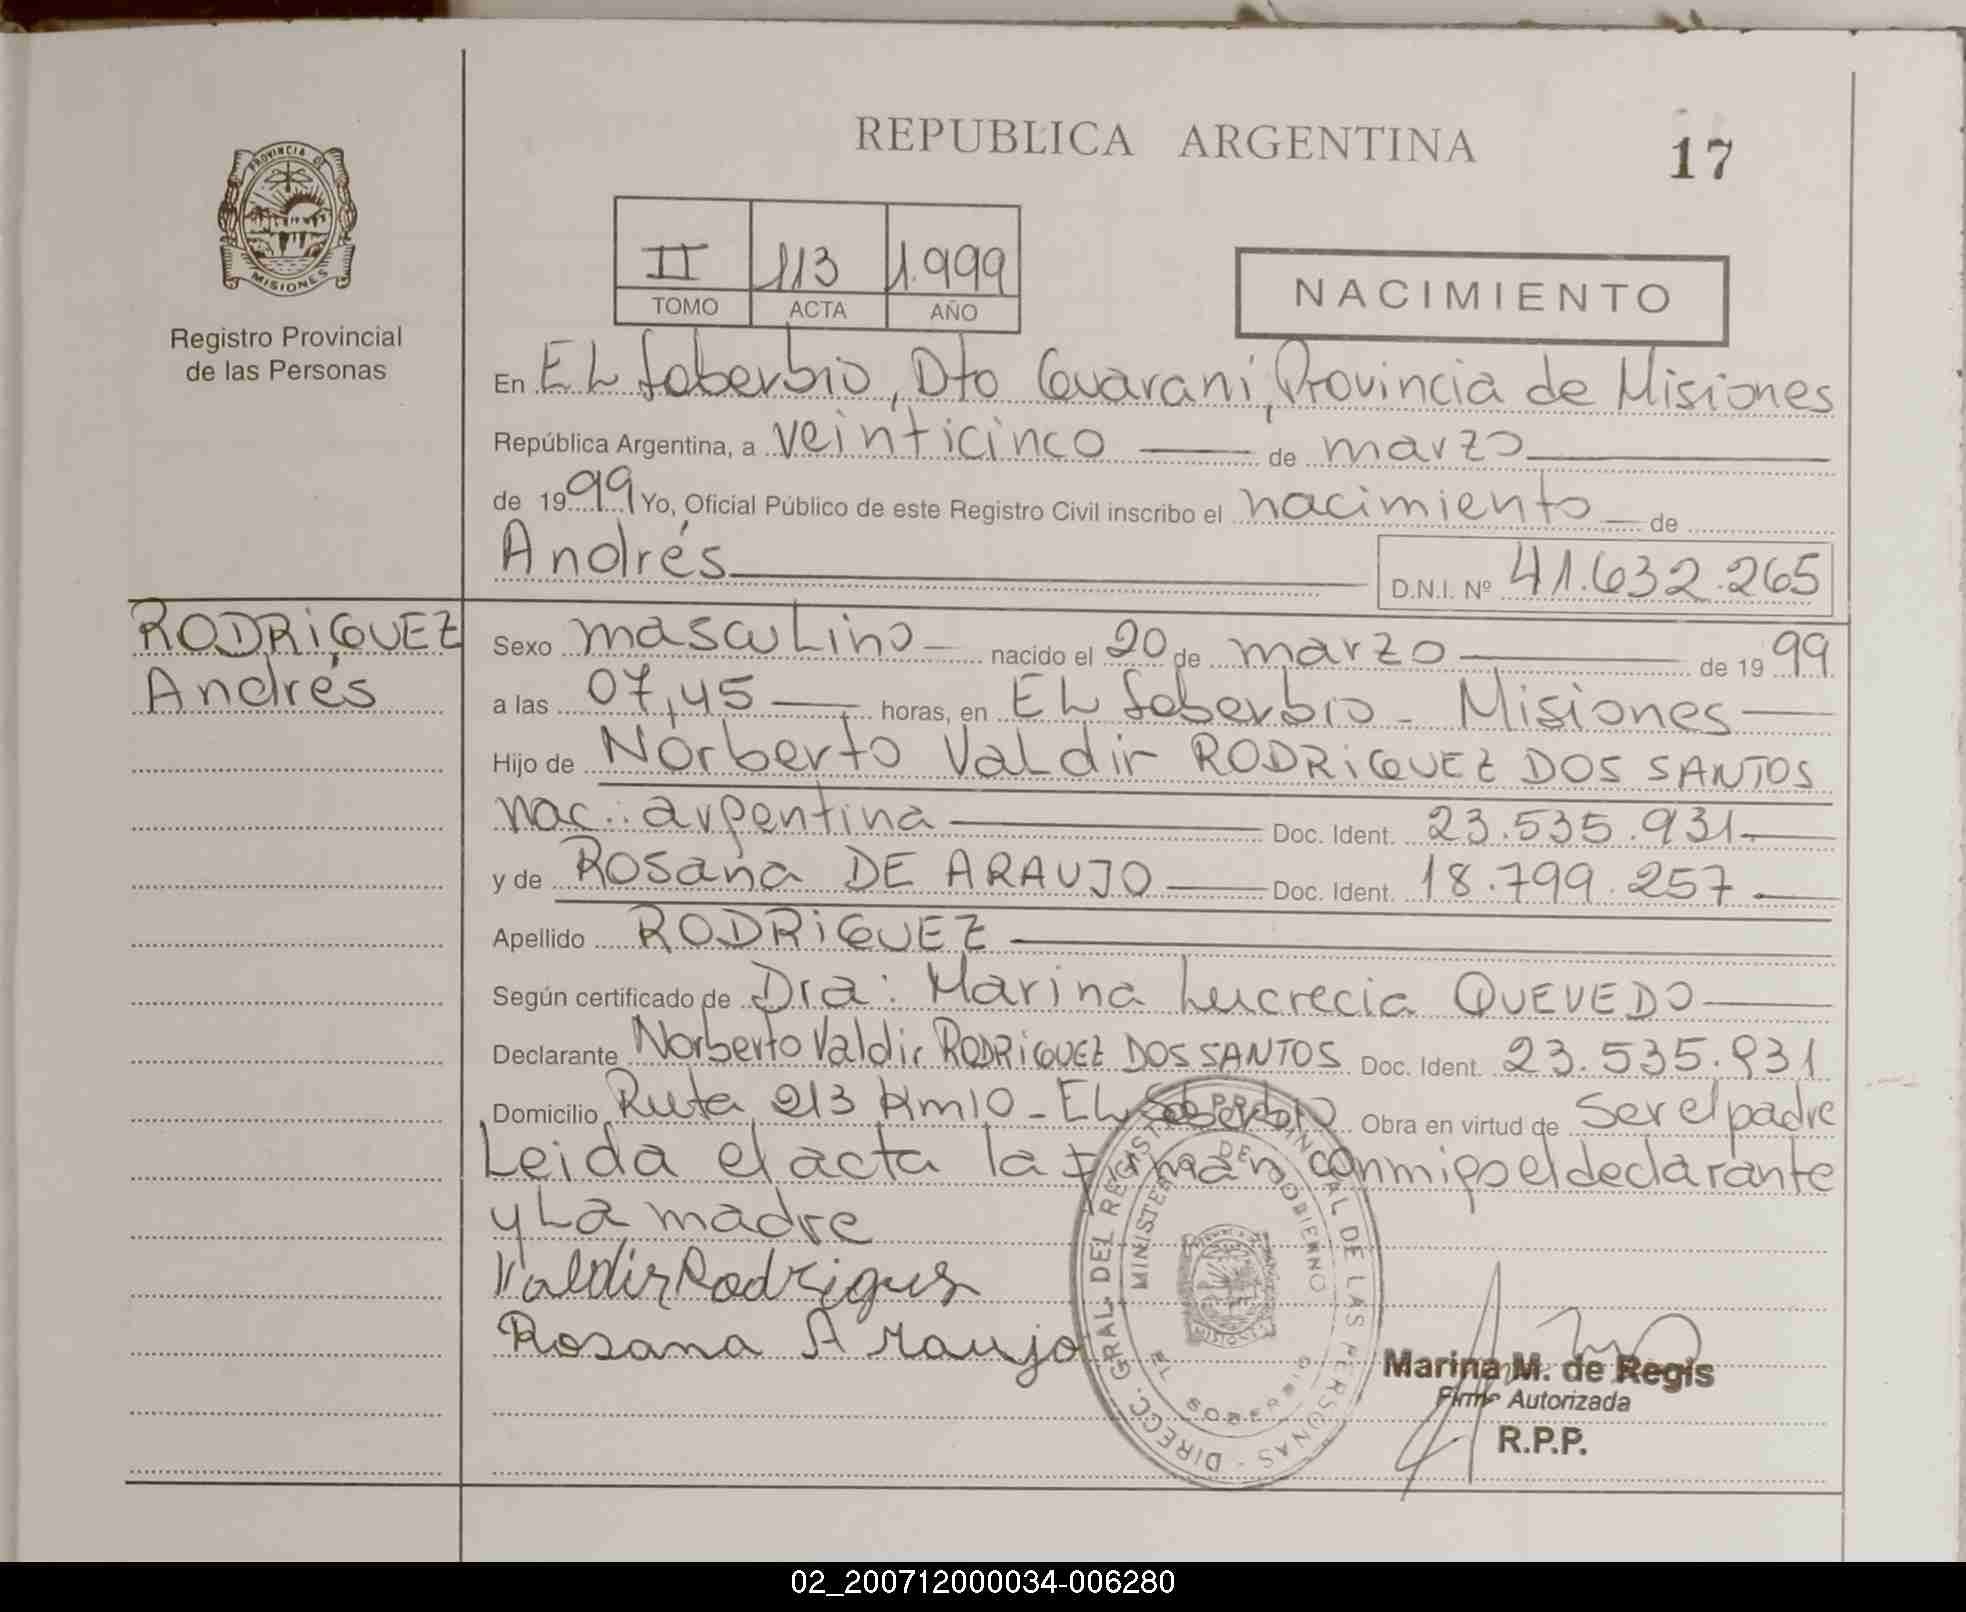 PROVINCIA DE
MISIONES
Registro Provincial
de las Personas
REPUBLICA ARGENTINA
17
II 113 1.999
TOMO ACTA AÑO
NACIMIENTO
En EL Soberbio, Dto Guarani, Provincia de Misiones
República Argentina, a veinticinco de marzo
de 1999 Yo, Oficial Público de este Registro Civil inscribo el nacimiento de
Andrés D.N.I. Nº 41.632.265
RODRIGUEZ
Andrés
Sexo masculino nacido el 20 de marzo de 1999
a las 07,45 horas, en EL Soberbio - Misiones
Hijo de Norberto Valdir RODRIGUEZ DOS SANTOS
nac.: argentina Doc. Ident. 23.535.931.
y de Rosana DE ARAUJO Doc. Ident. 18.799.257
Apellido RODRIGUEZ
Según certificado de Dra: Marina Lucrecia QUEVEDO
Declarante Norberto Valdir RODRIGUEZ DOS SANTOS Doc. Ident. 23.535.931
Domicilio Ruta 213 Km10 - EL Soberbio Obra en virtud de Ser el padre
Leida el acta la firman conmigo el declarante
y La madre
Valdir Rodrigues
Rosana Araujo
DIRECC. GRAL. DEL REGISTRO PROVINCIAL DE LAS PERSONAS
MINISTERIO DE GOBIERNO
EL SOBERBIO
MISIONES
Marina M. de Regis
Firma Autorizada
R.P.P.
02_200712000034-006280